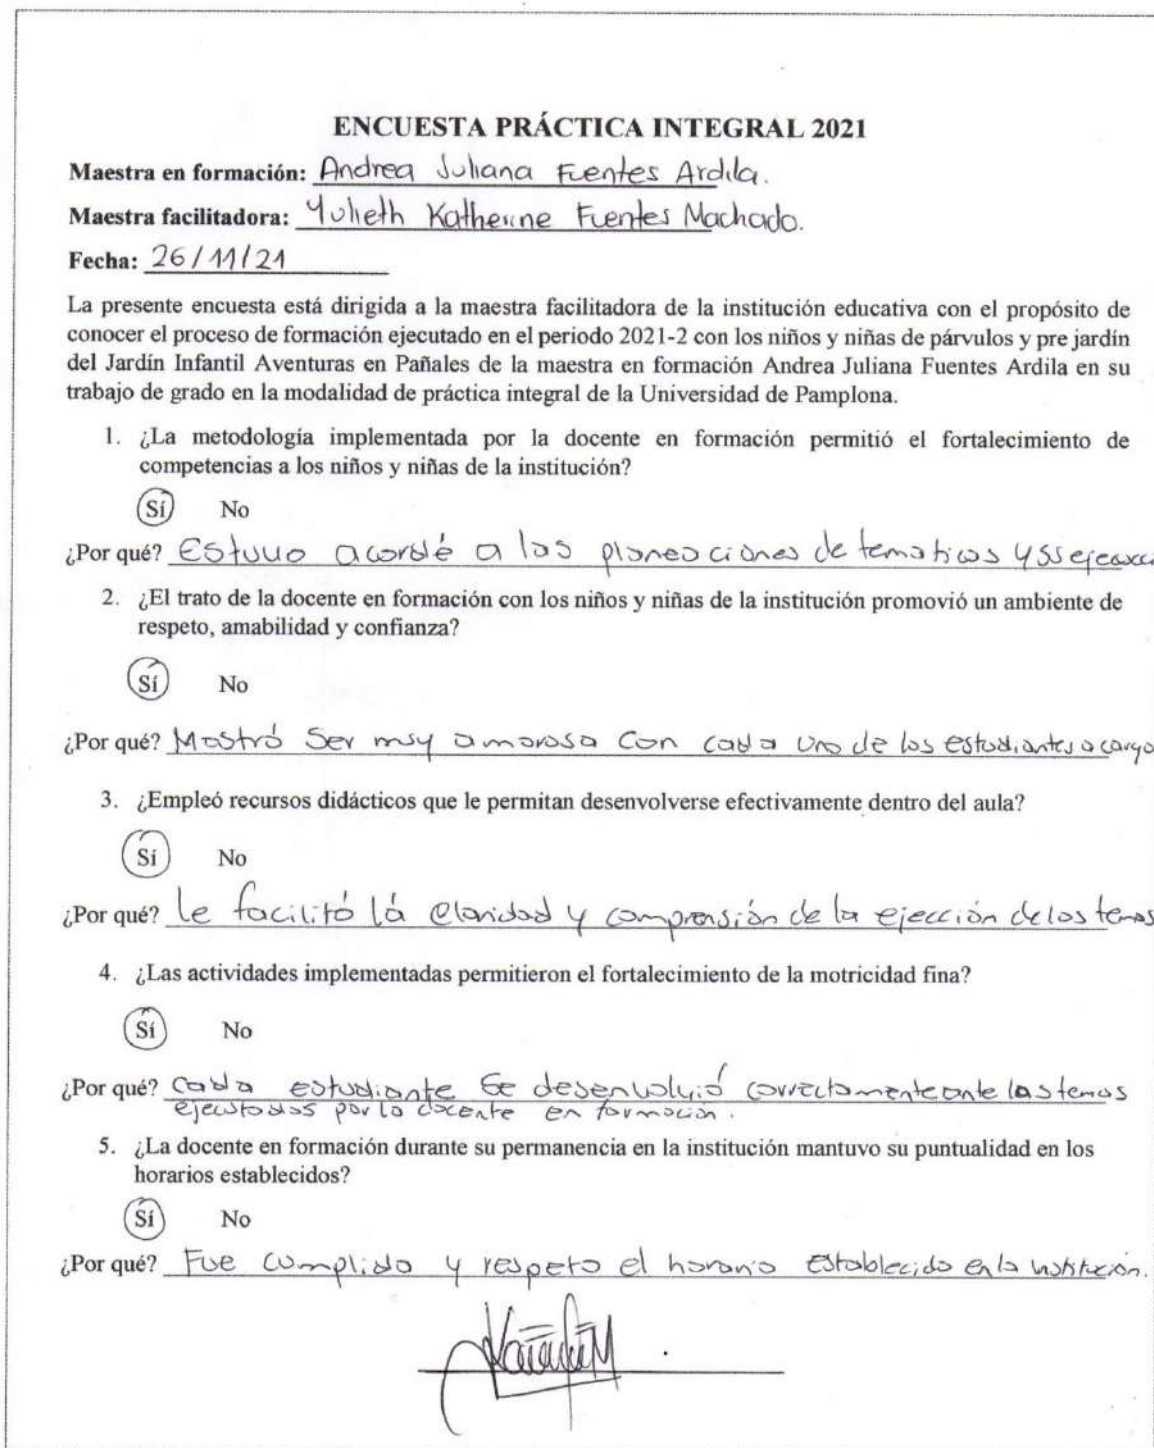 ENCUESTA PRÁCTICA INTEGRAL 2021
Maestra en formación: Andrea Juliana Fuentes Ardila.
Maestra facilitadora: Yulieth Katherine Fuentes Machado.
Fecha: 26/11/21
La presente encuesta está dirigida a la maestra facilitadora de la institución educativa con el propósito de
conocer el proceso de formación ejecutado en el periodo 2021-2 con los niños y niñas de párvulos y pre jardín
del Jardín Infantil Aventuras en Pañales de la maestra en formación Andrea Juliana Fuentes Ardila en su
trabajo de grado en la modalidad de práctica integral de la Universidad de Pamplona.
1. ¿La metodología implementada por la docente en formación permitió el fortalecimiento de
competencias a los niños y niñas de la institución?
Sí No
¿Por qué? Estuvo acordé a las planeaciones de tematicas y
2. ¿El trato de la docente en formación con los niños y niñas de la institución promovió un ambiente de
respeto, amabilidad y confianza?
Sí No
¿Por qué? Mostró Ser muy amorosa con cada uno de los estudiantes a cargo
3. ¿Empleó recursos didácticos que le permitan desenvolverse efectivamente dentro del aula?
Sí No
¿Por qué? le facilitó lá claridad y comprensión de la ejección de los temas
4. ¿Las actividades implementadas permitieron el fortalecimiento de la motricidad fina?
Sí No
¿Por qué? Cada estudiante se desenvolvió correctamente ante los temas
ejecutados por la docente en formación.
5. ¿La docente en formación durante su permanencia en la institución mantuvo su puntualidad en los
horarios establecidos?
Sí No
¿Por qué? Fue cumplida y respeto el horario establecido en la institución.